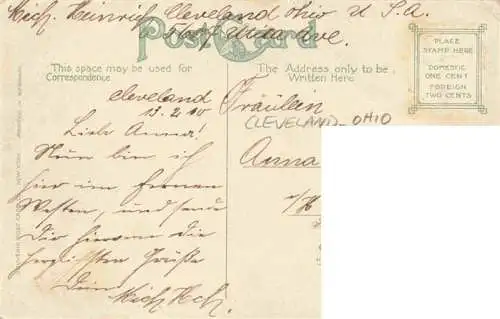 Mich. Heinrich, Cleveland Ohio U.S.A.
Ave.
Post Card
PLACE
STAMP HERE
DOMESTIC
ONE CENT
FOREIGN
TWO CENTS
This space may be used for
Correspondence
The Address only to be
Written Here
Cleveland
13. 2. 10
Liebe Anna!
Nun bin ich
hier im fernen
Westen, und sende
Dir hiermit die
herzlichsten Grüße
Dein
Mich. Hch.
Fräulein
CLEVELAND - OHIO
Anna